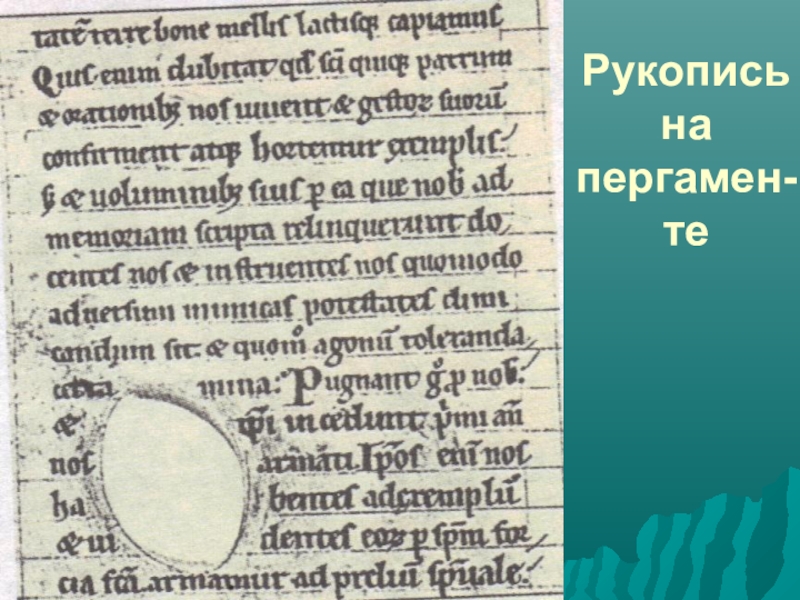 tatē terre bone mellis lactisq; capiamus
Quis enim dubitat qđ scī quiq; patrum
& orationib; nos iuuent & gestoꝝ suoꝝ
confirment atq; hortentur exemplis.
s; & uoluminib; suis ꝑ ea que nob ad
memoriam scripta relinquerunt do
centes nos & instruentes nos quomodo
aduersum inimicas potestates dimi
candum sit. & quom̊ agonū toleranda
certa mina. Pugnant g̊ ꝑ nob.
& ipsi incedunt primi añ
nos armati. Ipsos enī nos
ha bentes ad exemplū
& ui dentes eoꝝ ꝑ spm for
cia fcā. armamur ad preliū spuale.
Рукопись
на
пергамен-
те